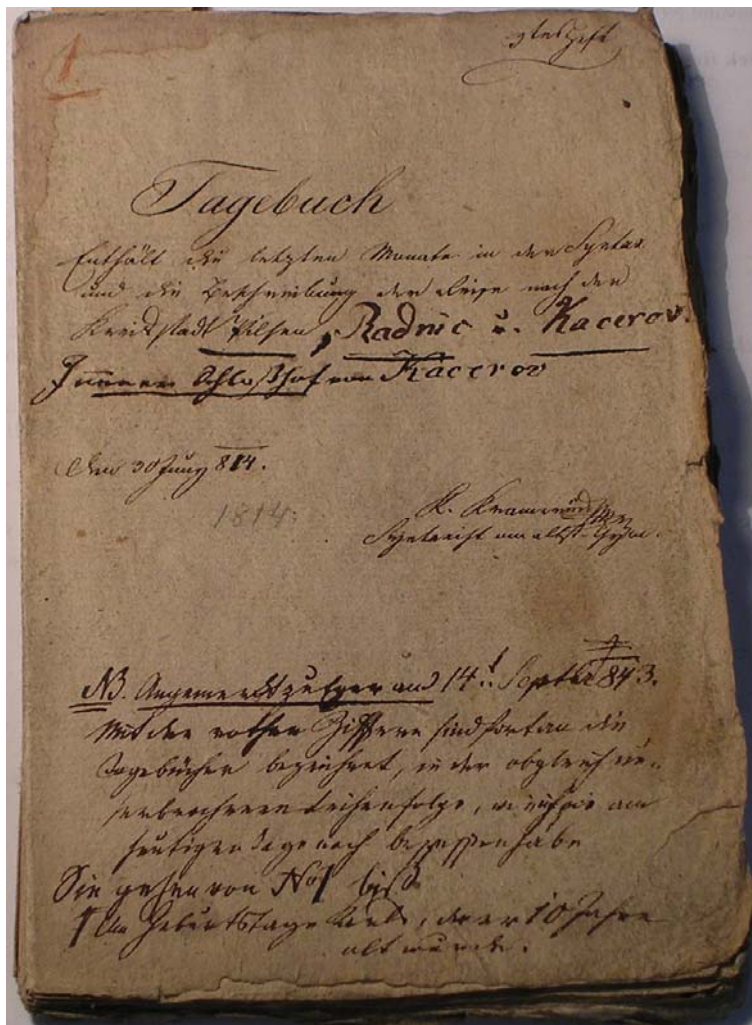 1.
2tes Heft
Tagebuch
Enthält die letzten Monate in der Syntax
und die Beschreibung der Reise nach der
Kreisstadt Pilsen, Radnic u. Kacerov.
Innerer Schloßhof von Kacerov
Den 30 Juny 814.
1814.
K.
am altst. Gym.
NB. Angemerkt zu Eger am 14t Septbr 843.
Mit den rothen Ziffern sind fortan die
Tagebücher bezeichnet, in der obgleich un-
terbrochenen Reihenfolge, wie ich sie am
heutigen Tage noch besessen habe
Sie gehen von No 1 bis
Am Geburtstage Karls, der er 10 Jahre
alt wurde.